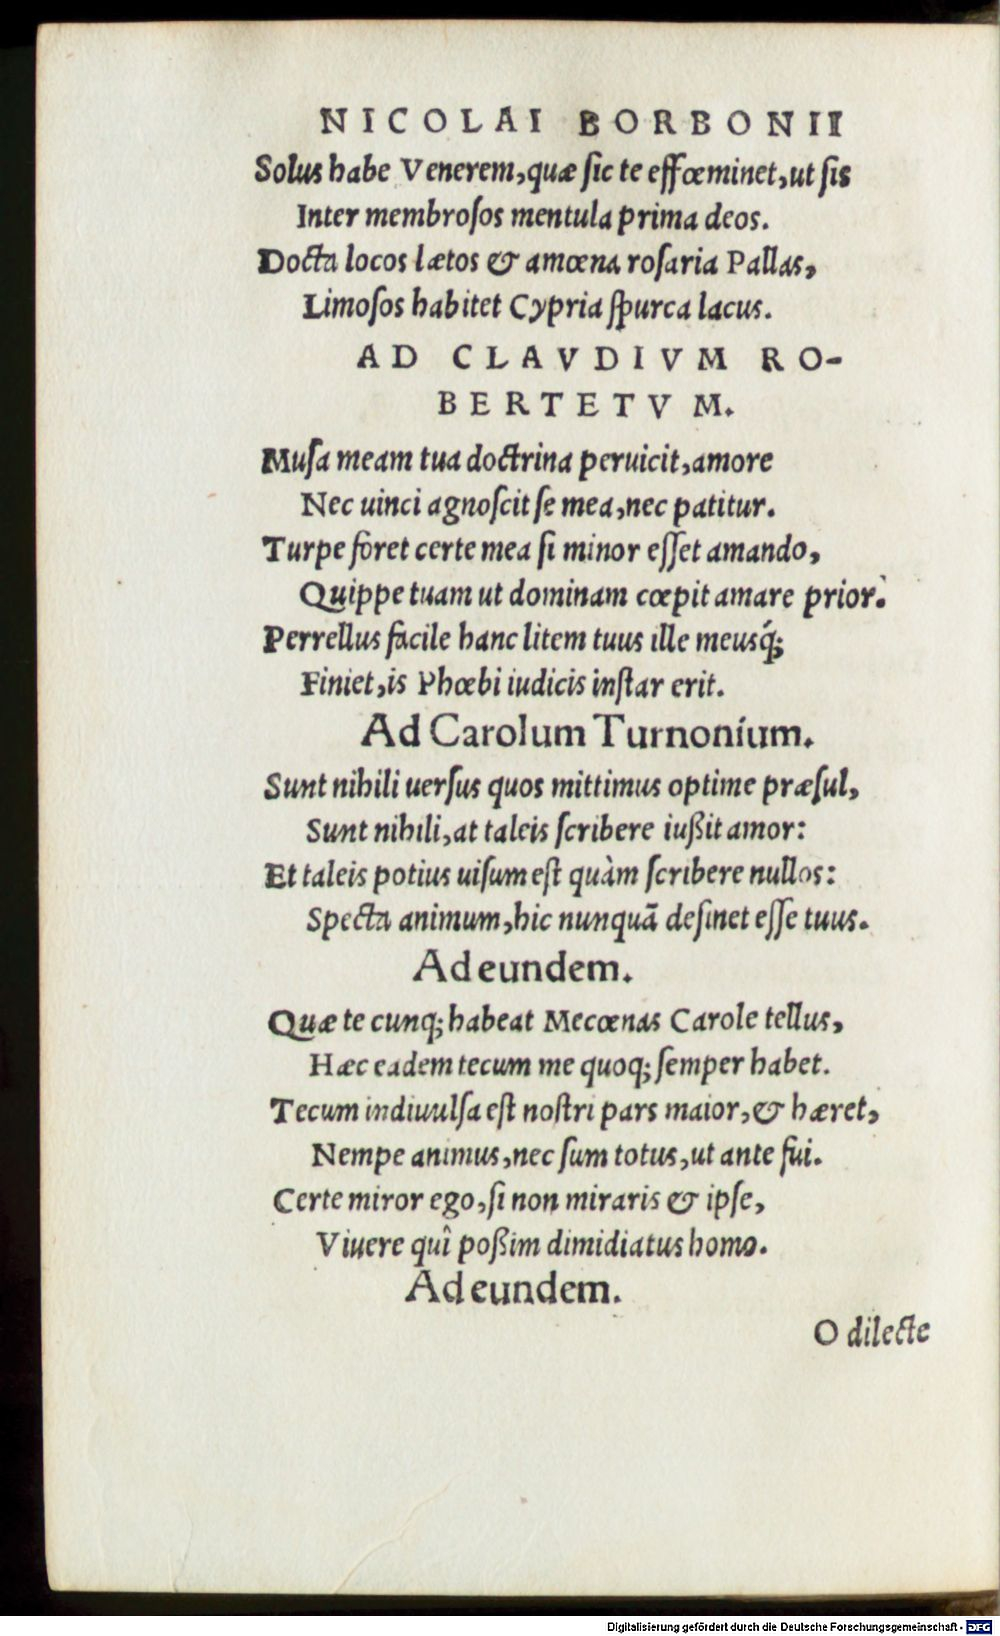 NICOLAI BORBONII
Solus habe Venerem, quæ ſic te effœminet, ut ſis
Inter membroſos mentula prima deos.
Docta locos lætos & amœna roſaria Pallas,
Limoſos habitet Cypria ſpurca lacus.
AD CLAVDIVM RO-
BERTETVM.
Muſa meam tua doctrina peruicit, amore
Nec uinci agnoſcit ſe mea, nec patitur.
Turpe foret certe mea ſi minor eſſet amando,
Quippe tuam ut dominam cœpit amare prior.
Perrellus facile hanc litem tuus ille meusq́;
Finiet, is Phœbi iudicis inſtar erit.
Ad Carolum Turnonium.
Sunt nihili uerſus quos mittimus optime præſul,
Sunt nihili, at taleis ſcribere iußit amor:
Et taleis potius uiſum eſt quàm ſcribere nullos:
Specta animum, hic nunquã deſinet eſſe tuus.
Ad eundem.
Quæ te cunq; habeat Mecœnas Carole tellus,
Hæc eadem tecum me quoq; ſemper habet.
Tecum indiuulſa eſt noſtri pars maior, & hæret,
Nempe animus, nec ſum totus, ut ante fui.
Certe miror ego, ſi non miraris & ipſe,
Viuere quî poßim dimidiatus homo.
Ad eundem.
O dilecte
Digitalisierung gefördert durch die Deutsche Forschungsgemeinschaft - DFG